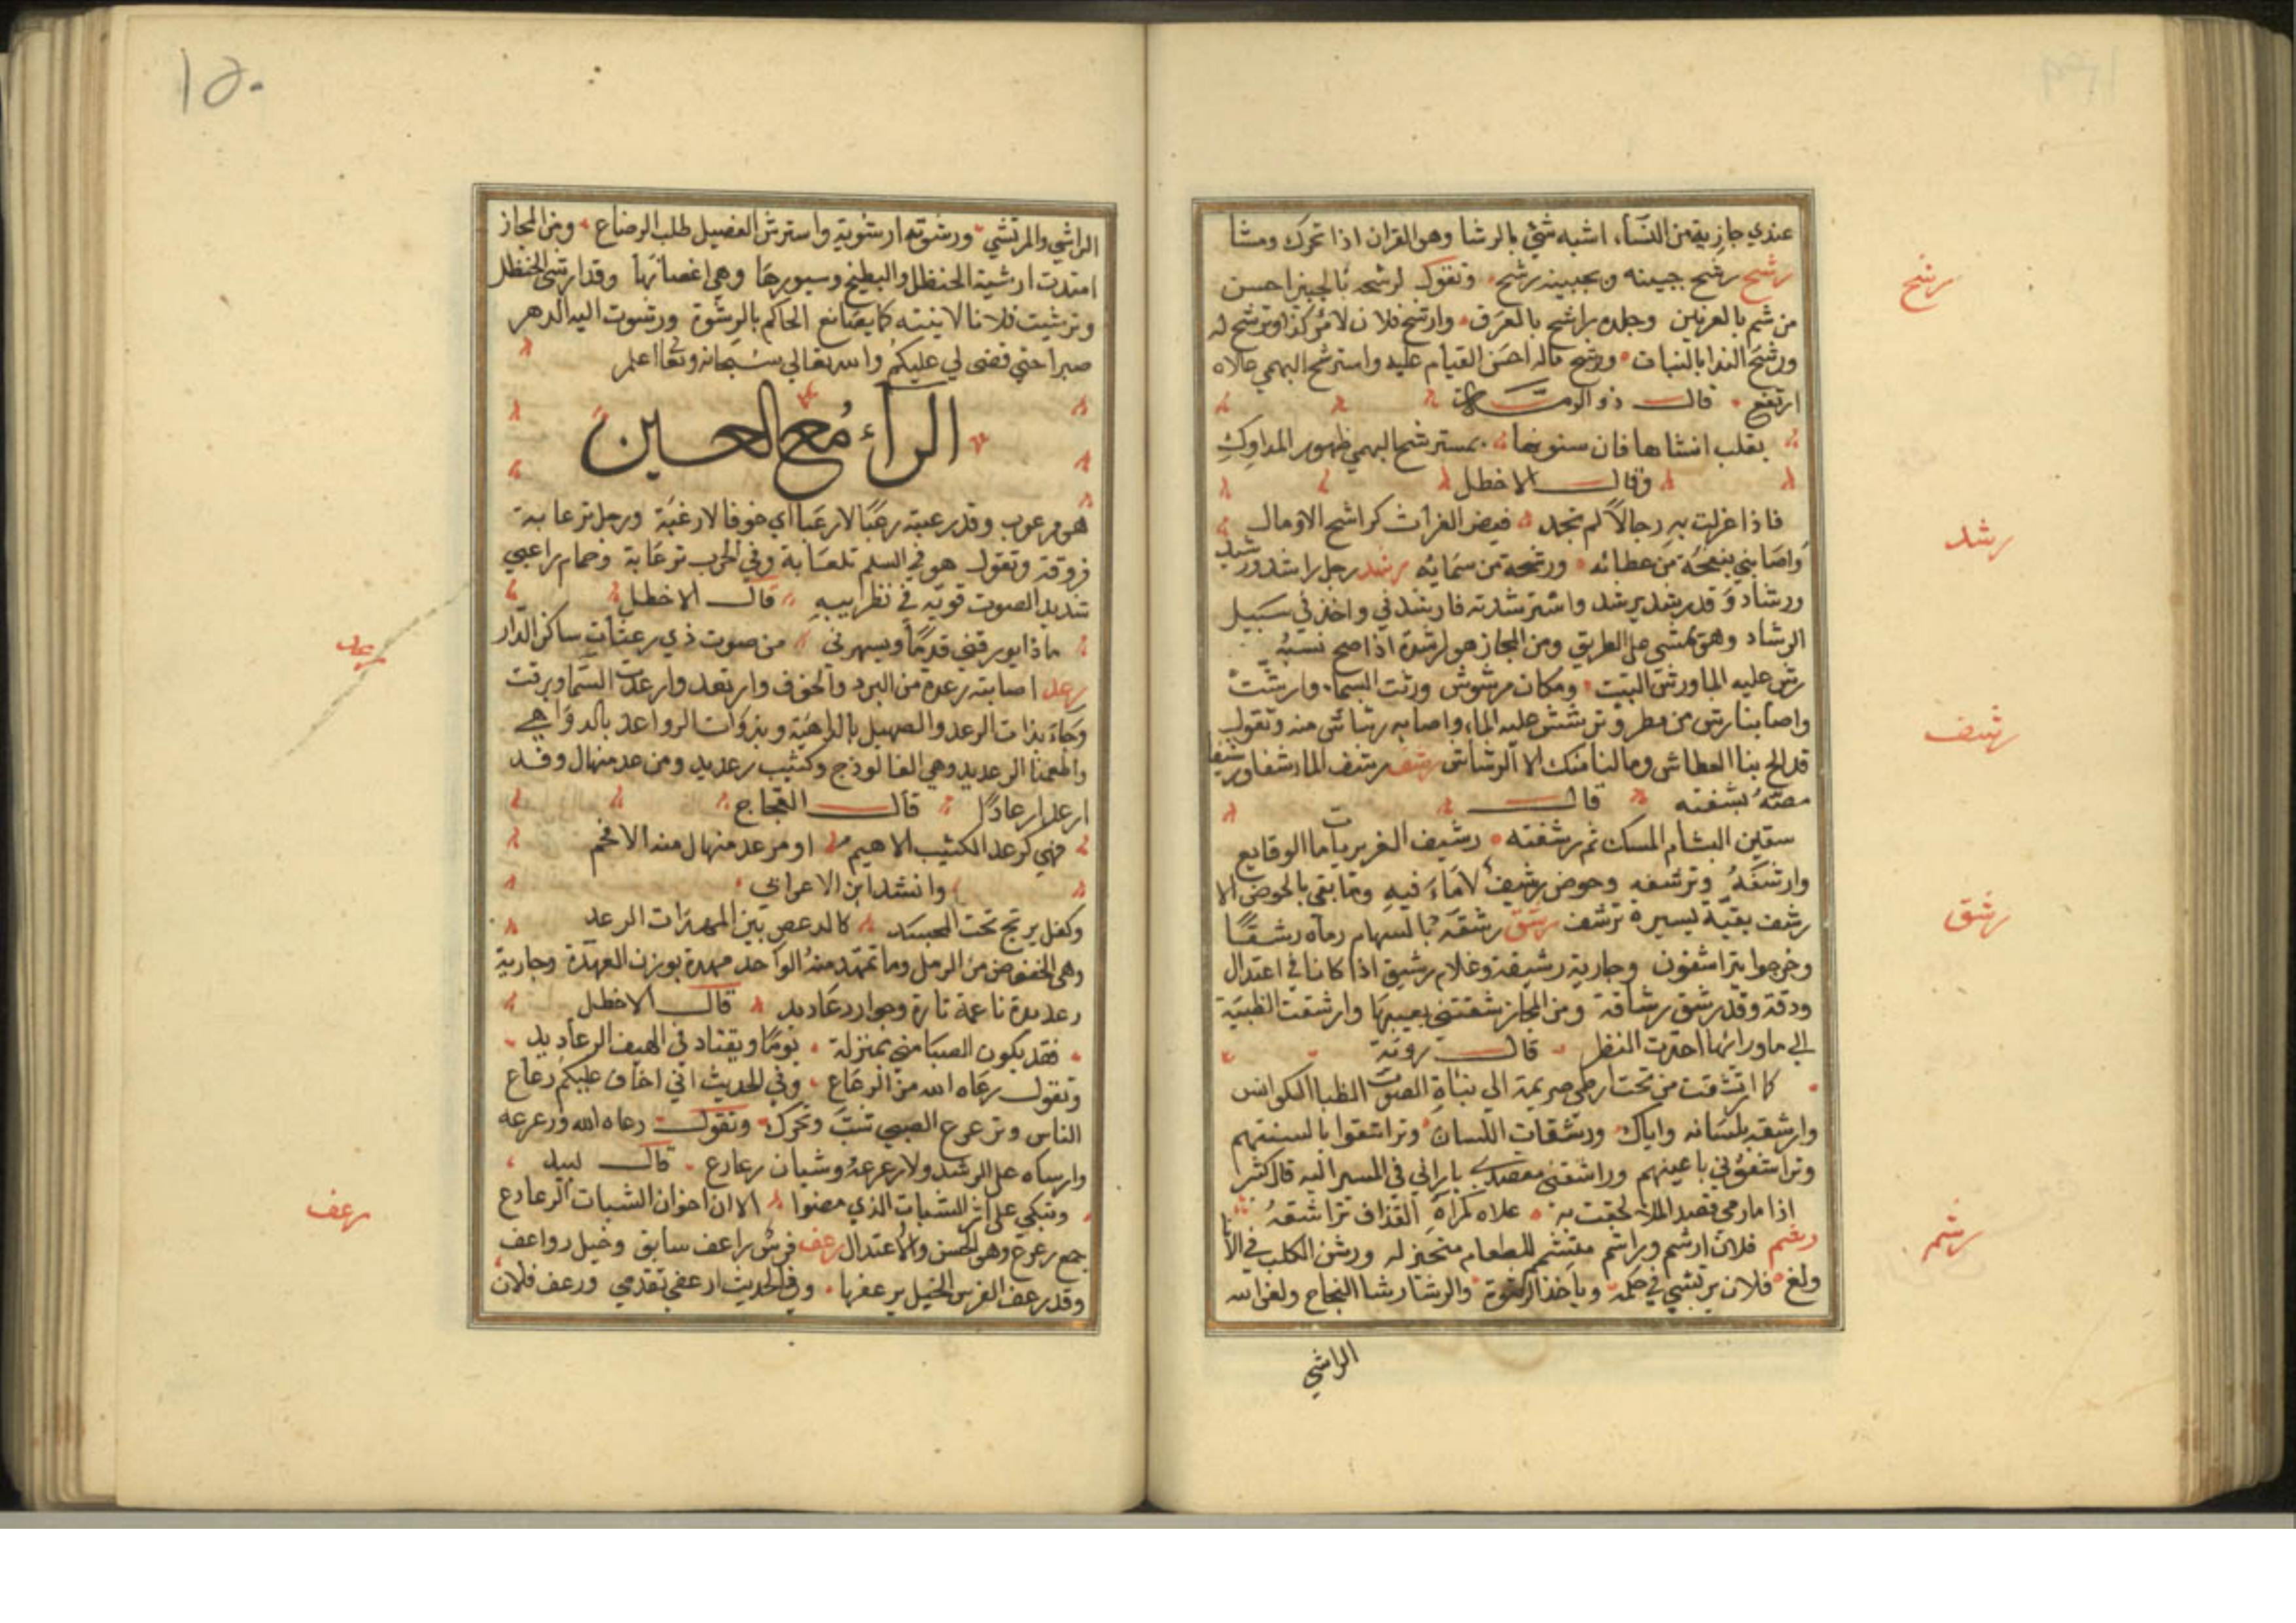 عندي جازية من النساء، اشبه شئ بالرشا وهو القران اذا تحرك ومشا
رشح
رشح رشح جبينه وبجبينه رشح وتقول لرشحه بالجبين احسن
من شم بالعرنين وجلده راشح بالعرق وارتشح فلان لامر كذا وترشح له
ورشح الندا بالنبات ورشح ماله احسن القيام عليه واسترشح البهمي علاه
ارتفع قال ذو الرمة
يقلب اشباها فان سنونها بمسترشح البهمي ظهور المداوك
وقال الاخطل
فاذا عزلت به رجالا لم تجد فيض الفرات كراشح الاوشال
رشد
واصابني بنفحة من عطائه ورشحة من سمائه رشد رجل راشد ورشيد
ورشاد وقد رشد يرشد واسترشدته فارشدني واخذ في سبيل
الرشاد وهو يمشي على الطريق ومن المجاز هو لرشدة اذا صح نسبه
رش عليه الما ورش البيت ومكان مرشوش ورشت السما وارشت
رشف
واصابنا رش من مطر وترشش عليه الماء واصابه رشاش منه وتقول
قد الح بنا العطاش وما لنا منك الا الرشاش رشف رشف الما رشفا ورشيفا
مصه بشفته قال
سقين البشام المسك ثم رشفنه رشيف الغريريات ما الوقايع
وارتشفه وترشفه وحوض رشيف لا ماء فيه وما بقي بالحوض الا
رشق
رشف بقية يسيرة ترشف رشق رشقه بالسهام رماه رشقا
وخرجوا يتراشقون وجارية رشيقة وغلام رشيق اذا كانا في اعتدال
ودقة وقد رشق رشاقة ومن المجاز رشقتني بعينيها وارشقت الظبية
الي ما ورائها احترت النظر قال روبة
كما ارتشقت من تحت ارطى صريمة الي نباة الصوت الظبا الكوانس
وارشقه بلسانه واياك ورشقات اللسان وتراشقوا بالسنتهم
وتراشقوني باعينهم وراشقني مقصدي باراني في المسير اليه قال كثير
اذا ما رمي قصد الملا لحقت به علاه كمراة القذاف تراشقه
رشم
رشم فلان ارشم وراشم متشمم للطعام متحيز له ورشن الكلب في الانا
ولغ فلان يرتشي في حكمه وياخذ الرشوة والرشا رشا النجاح ولعن الله
الراشي
١٥٠
الراشي والمرتشي ورشوته ارشويه واسترش الفصيل طلب الرضاع ومن المجاز
امتدت ارشية الحنظل والبطيخ وسيورها وهي اغصانها وقد ارشى الحنظل
وترشيت فلانا لاينته كما يصانع الحاكم بالرشوة ورشوت اليه الدهر
صبرا حتي قضى لي عليكم والله تعالي سبحانه وتعا اعلم
الرآء مع العين
هو مرعوب وقد رعبته رعبا لا رغبا اي خوفا لا رغبة ورجل ترعابة
فروقة وتقول هو في السلم تلعابة وفي الحرب ترعابة وحمام راعبي
شديد الصوت قويه في تطريبه قال الاخطل
رعد
ماذا يورقني قدما ويسهرني من صوت ذي رعثات ساكن الدار
رعد اصابته رعدة من البرد والخوف وارتعد وارعدت السما وبرقت
وجاء بذات الرعد والصهيل بالداهية وبذوات الرواعد بالدواهي
واطعمنا الرعديد وهي الفالوذج وكثيب رعديد ومن عد منهال وقد
ارعد ارعادا قال العجاج
فهي كرعد الكثيب الاهيم او مرعد منهال منه الاخم
وانشد ابن الاعرابي
وكفل يرتج تحت المجسد كالدعص بين المهدات الرعد
وهي الخفوض من الرمل وما تمهد منه الواحد مهدة بوزن العهدة وجارية
رعديدة ناعمة تارة وجوار رعاديد قال الاخطل
فقد يكون الصبا مني بمنزلة يوما ويقتاد في الهيف الرعاديد
وتقول رعاه الله من الرعاع وفي الحديث اني اخاف عليكم رعاع
الناس وترعرع الصبي شب وتحرك وتقول رعاه الله ورعرعه
وارساه على الرشد ولا زعزعه وشبان رعارع قال لبيد
رعف
وتبكي على اثر الشباب الذي مضوا الا ان اخوان الشباب الرعارع
جمع رعرع وهو الحسن والاعتدال رعف فرس راعف سابق وخيل رواعف
وقد رعف الفرس الخيل يرعفها وفي الحديث ارعفي تقدمي ورعف فلان